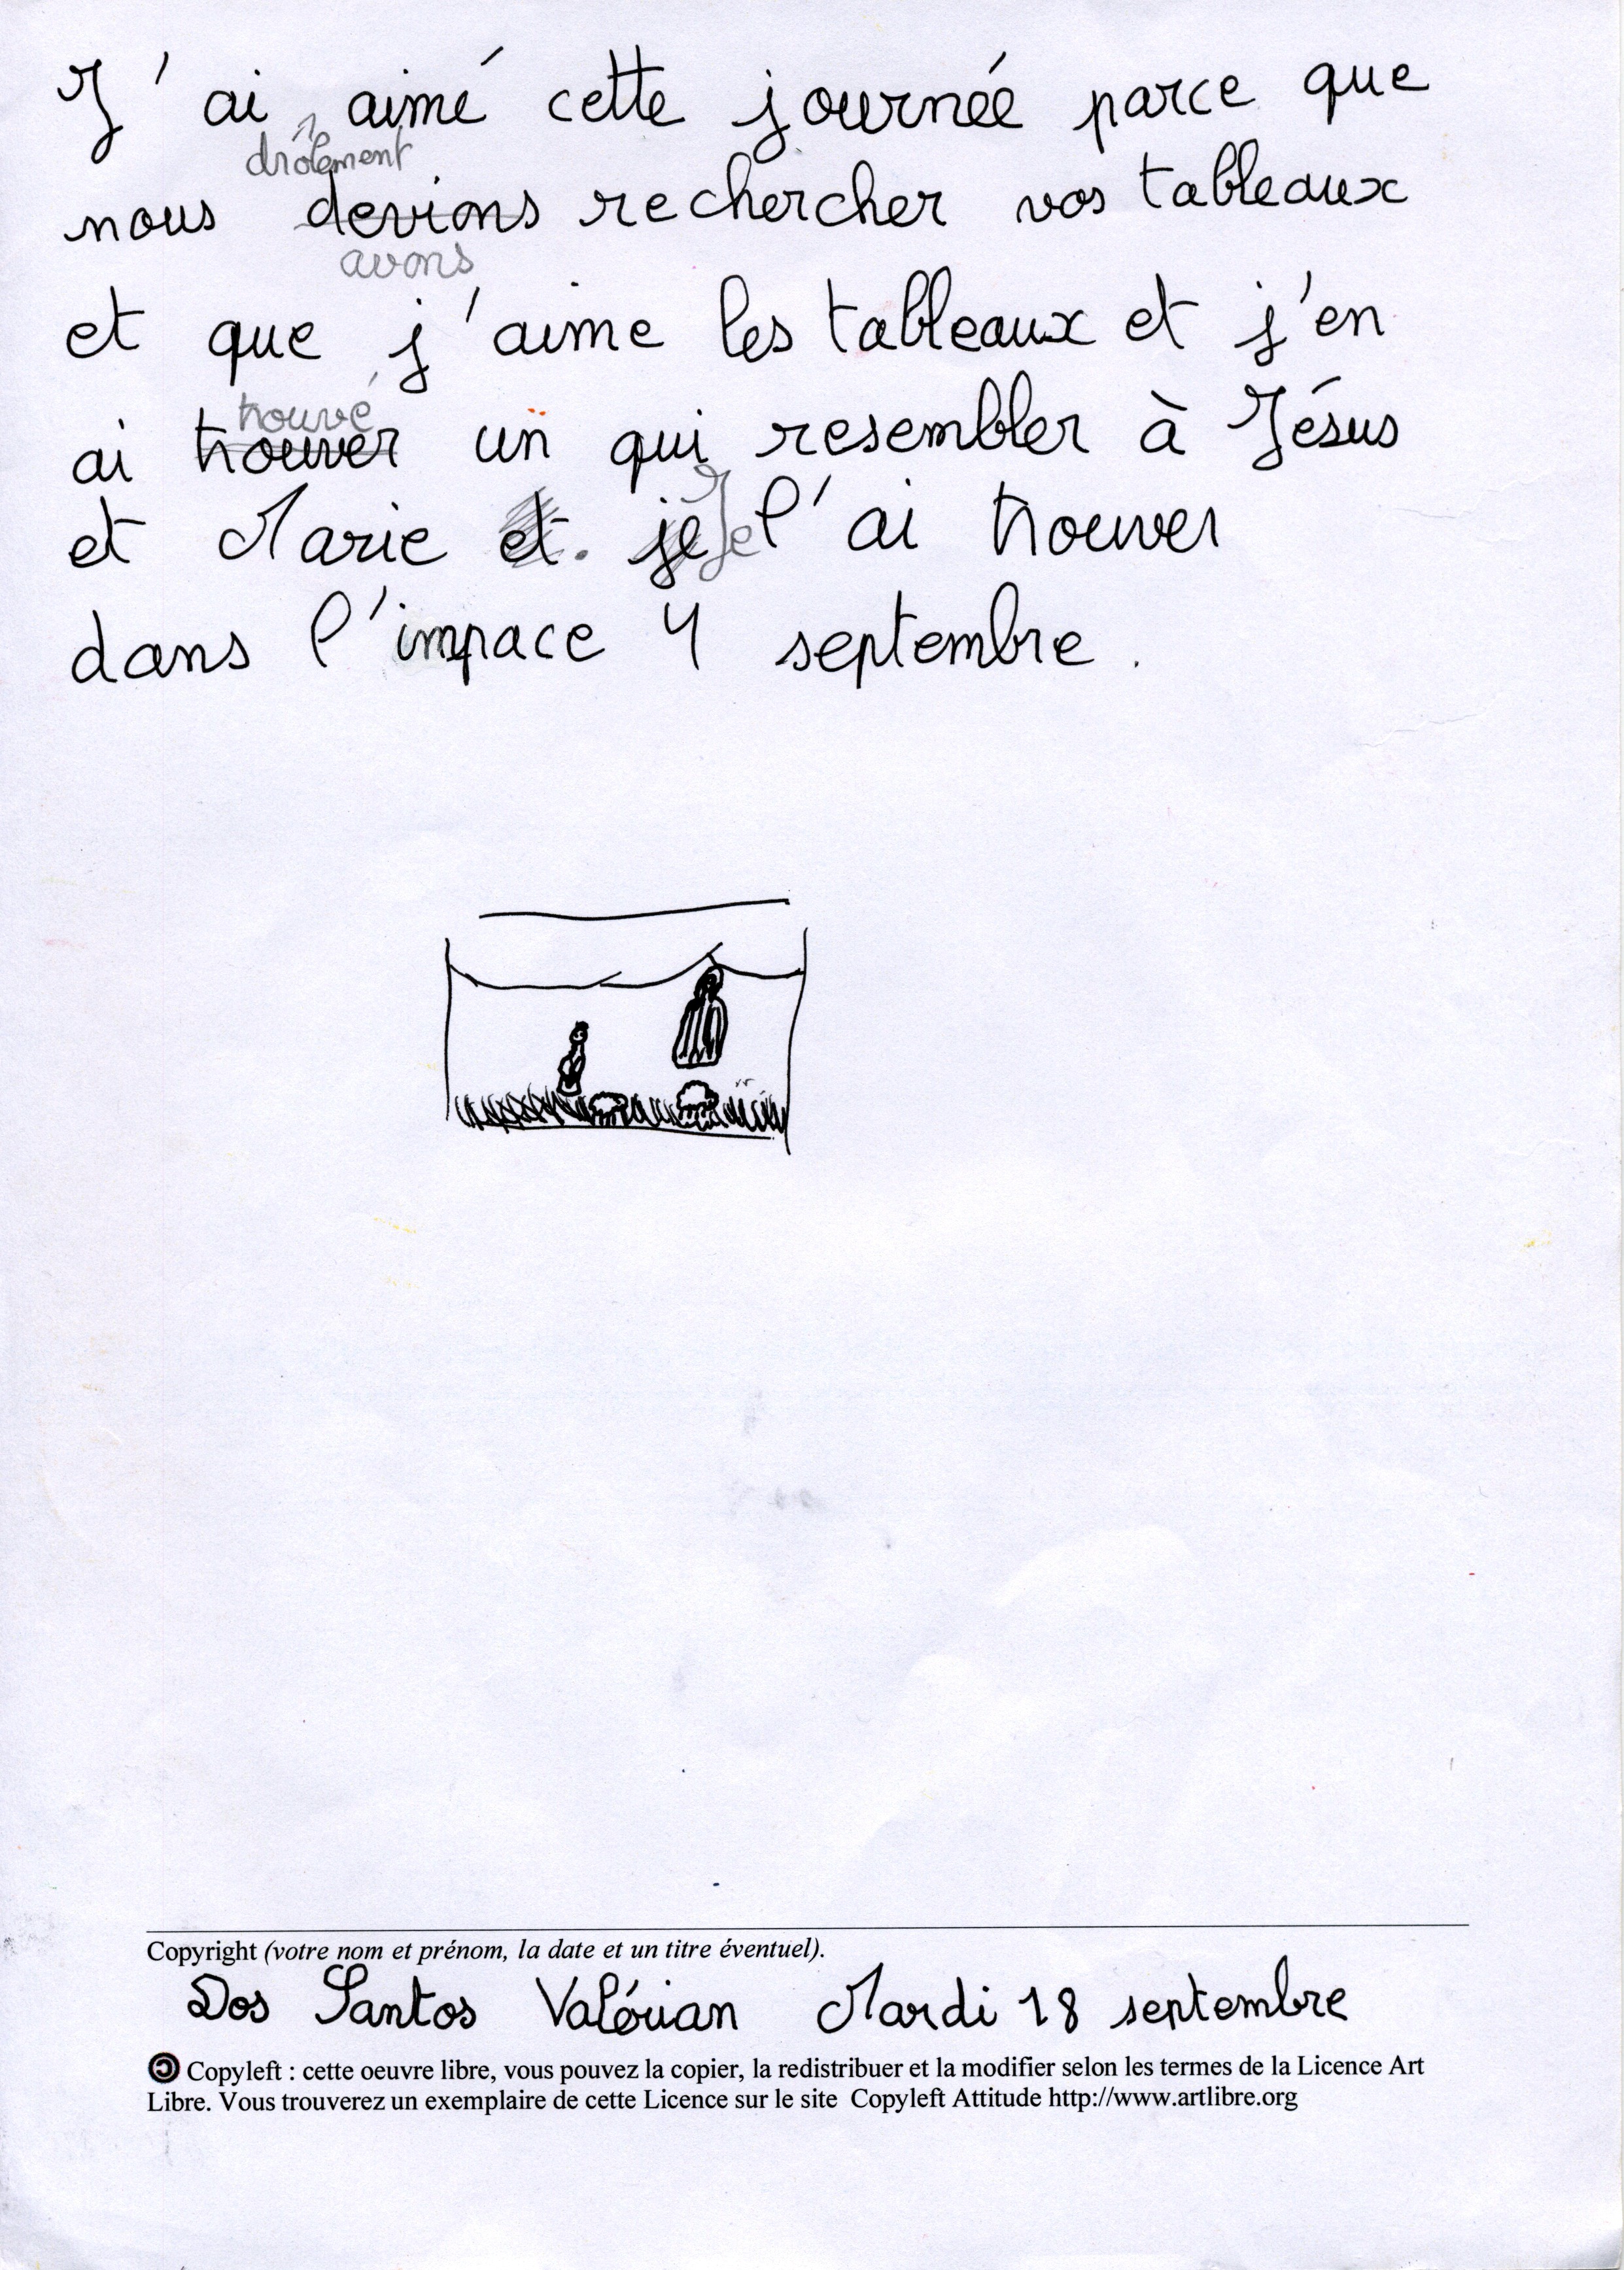 J'ai aimé cette journée parce que
drôlement
nous devions rechercher vos tableaux
avons
et que j'aime les tableaux et j'en
trouvé
ai trouver un qui resembler à Jésus
et Marie et. je Je l'ai trouver
dans l'impace 4 septembre.
Copyright (votre nom et prénom, la date et un titre éventuel).
Dos Santos Valérian Mardi 18 septembre
Copyleft : cette oeuvre libre, vous pouvez la copier, la redistribuer et la modifier selon les termes de la Licence Art
Libre. Vous trouverez un exemplaire de cette Licence sur le site Copyleft Attitude http://www.artlibre.org